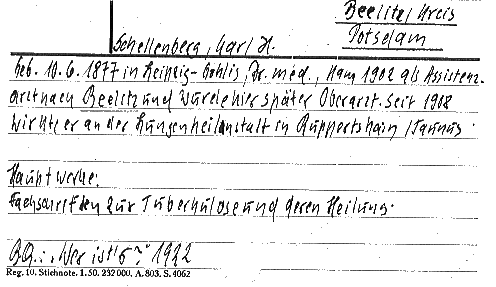 Beelitz/Kreis
Potsdam
Schellenberg, Karl H.
Geb. 10.6.1877 in Leipzig-Gohlis, Dr. med., kam 1902 als Assistenz-
arzt nach Beelitz und wurde hier später Oberarzt. Seit 1908
wirkte er an der Lungenheilanstalt in Ruppertshain/Taunus.
Hauptwerke:
Fachschriften zur Tuberkulose und deren Heilung.
BQ.: "Wer ist's?" 1922
Reg. 10. Stichnote. 1. 50. 232 000. A. 803. S. 4062